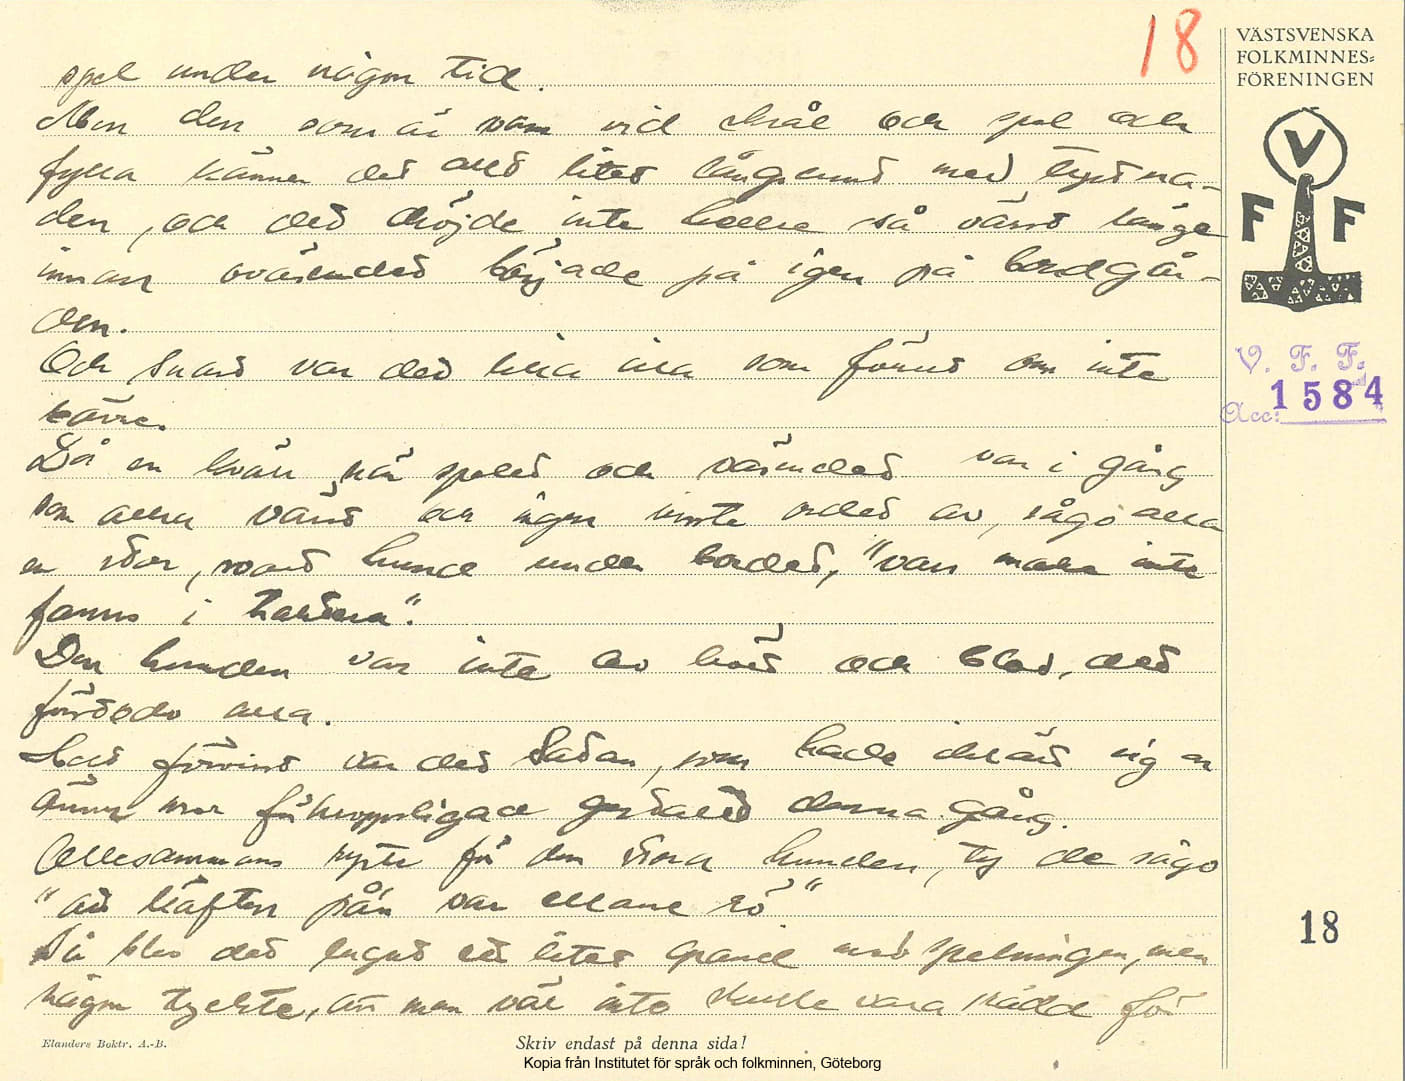 18
VÄSTSVENSKA
FOLKMINNES-
FÖRENINGEN
V
F F
V. F. F.
Acc: 1584
spel under någon tid.
Men den som är van vid skrål och spel och
fylla känner det allt litet långsamt med tystna-
den, och det dröjde inte heller så värst länge
innan oväsendet började på igen på bordgår-
den.
Och snart var det lika illa som förut om inte
värre.
Då en kväll när spelet och väsendet var i gång
som allra värst och ingen visste ordet av, sågo alla
en stor, svart hund under bordet, "vars make inte
fanns i
Den hunden var inte av kött och blod, det
förstodo alla.
Helt förvisst var det Satan, som hade iklätt sig en
ännu mer gestalt denna gång.
Allesammans ryste för den stora hunden, ty de sågo
"att käften på'n var ellane rö"
Då blev det lugnt ett litet grand med spelningen, men
någon tyckte, att man väl inte skulle vara rädd för
18
Elanders Boktr. A.-B.
Skriv endast på denna sida!
Kopia från Institutet för språk och folkminnen, Göteborg